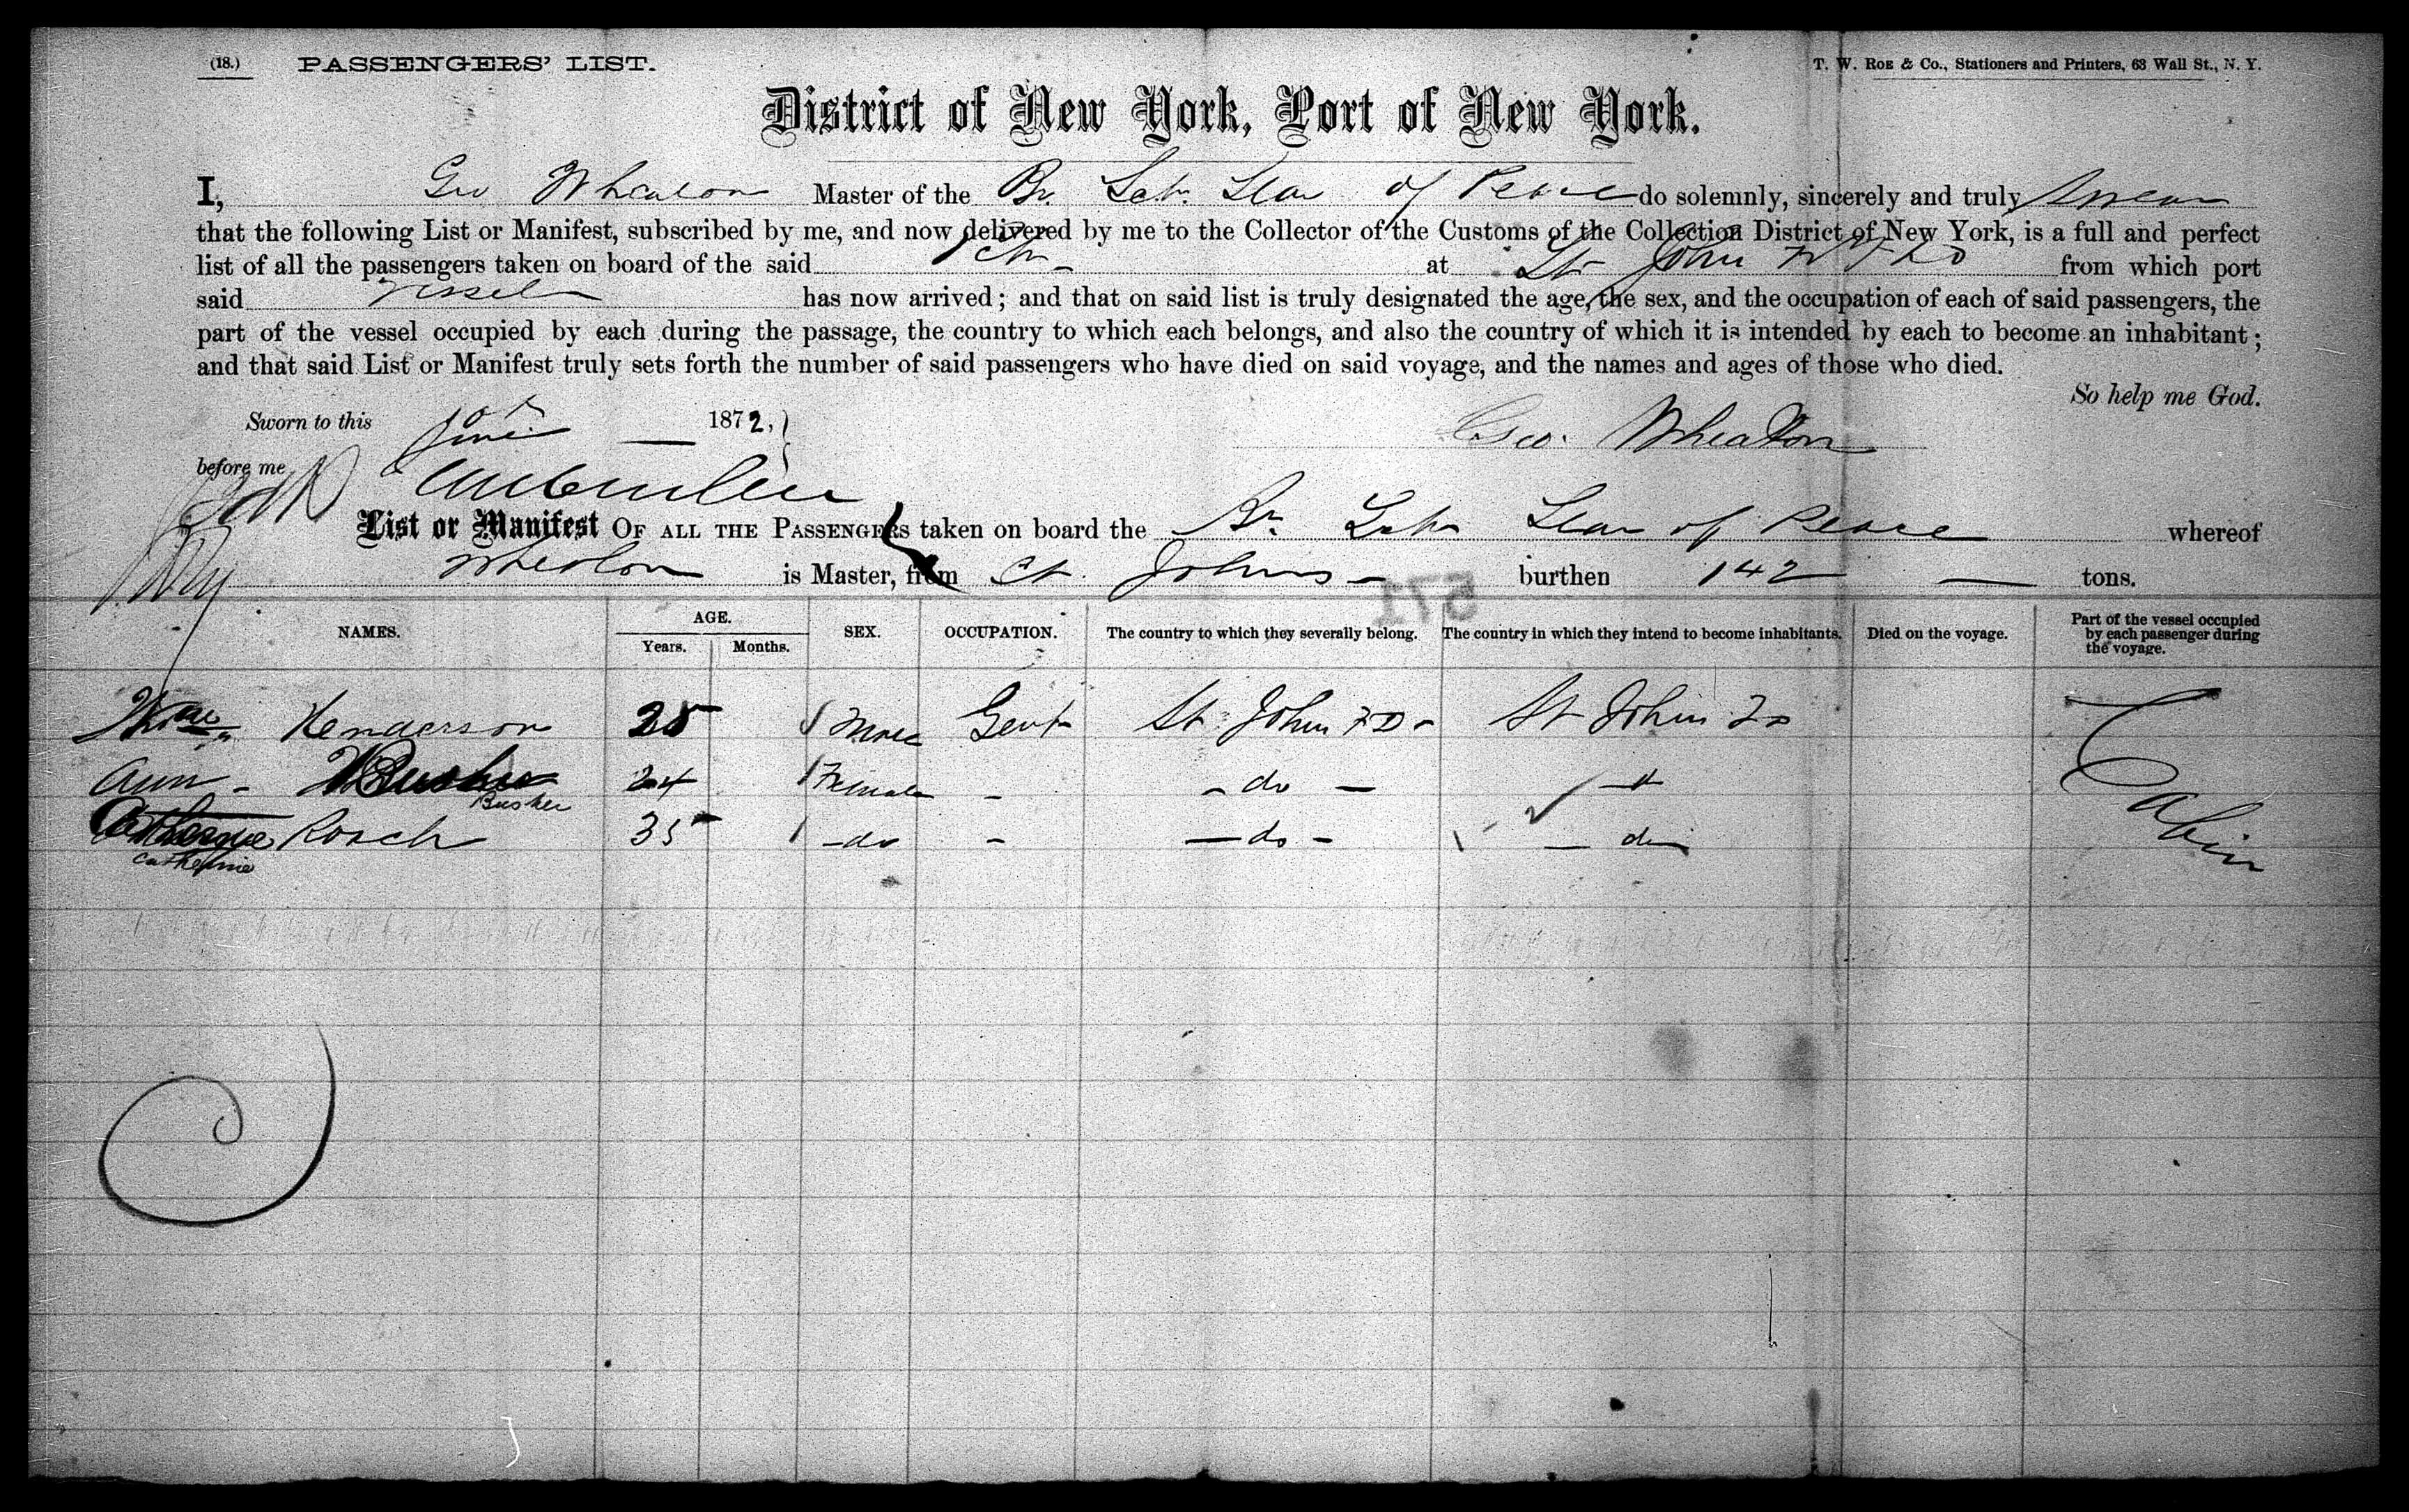 (18.) PASSENGERS' LIST. T. W. ROE & Co., Stationers and Printers, 63 Wall St., N. Y.
District of New York, Port of New York.
I, Geo Wheaton Master of the Br. Schr. Star of Peace do solemnly, sincerely and truly swear
that the following List or Manifest, subscribed by me, and now delivered by me to the Collector of the Customs of the Collection District of New York, is a full and perfect
list of all the passengers taken on board of the said Schr at St John from which port
said vessel has now arrived; and that on said list is truly designated the age, the sex, and the occupation of each of said passengers, the
part of the vessel occupied by each during the passage, the country to which each belongs, and also the country of which it is intended by each to become an inhabitant;
and that said List or Manifest truly sets forth the number of said passengers who have died on said voyage, and the names and ages of those who died.
So help me God.
Sworn to this June 1872,
Geo. Wheaton
before me
List or Manifest OF ALL THE PASSENGERS taken on board the Br Schr Star of Peace whereof
Wheaton is Master, from St. Johns burthen 142 tons.
571
NAMES. AGE. Years. Months. SEX. OCCUPATION. The country to which they severally belong. The country in which they intend to become inhabitants. Died on the voyage. Part of the vessel occupied by each passenger during the voyage.
Henderson 25 Male Gent St John St John
Ann - Busher 24 Female - - do -
Catherine Roach 35 - do - - do - - do
Cabin